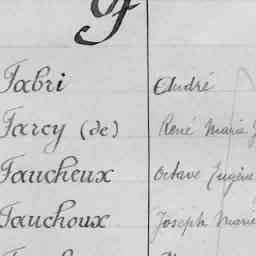 F
Fabri André
Farcy (de) René Marie J
Faucheux Octave Eugène
Fauchoux Joseph Marie